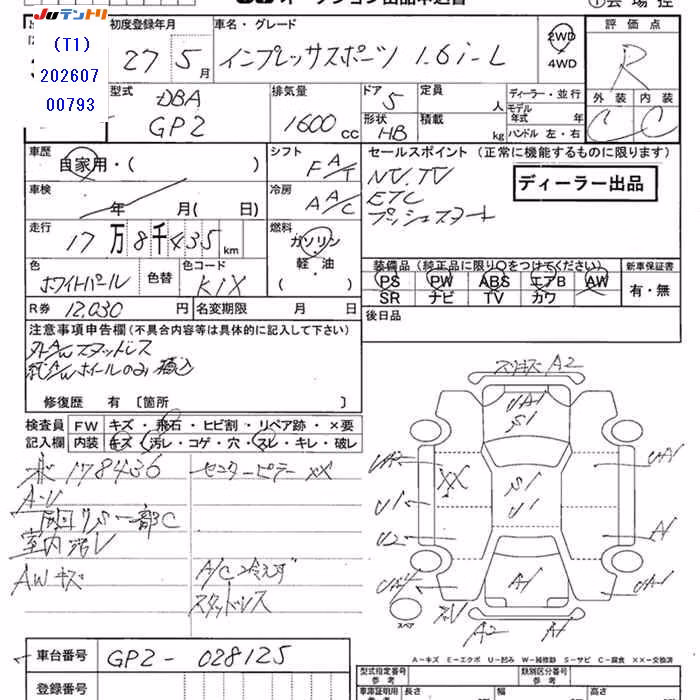 JUテントリ
(T1)
202607
00793
初度登録年月
車名・グレード
評価点
27 5月
インプレッサスポーツ 1.6i-L
2WD
4WD
R
外装 内装
C C
型式 DBA
GP2
排気量
1600cc
ドア 5
定員 人
ディーラー・並行
モデル年式 年
形状 HB
積載 kg
ハンドル 左・右
車歴 自家用・( )
シフト F A/T
セールスポイント (正常に機能するものに限ります)
NV.TV
ETC
プッシュスタート
ディーラー出品
車検 年 月( 日)
冷房 A A/C
走行 17万8千435km
燃料 ガソリン・軽・油
( )
装備品 (純正品に限り○をつけてください)
新車保証書
PS PW ABS エアB AW
SR ナビ TV カワ
有・無
色 ホワイトパール
色替
色コード K1X
R券 12,030円
名変期限 月 日
後日品
注意事項申告欄 (不具合内容等は具体的に記入して下さい)
外A/Wスタッドレス
純A/Wホイールのみ積込
修復歴 有 〔箇所 〕
検査員記入欄
FW キズ・飛石・ヒビ割・リペア跡・×要
内装 キズ・汚レ・コゲ・穴・スレ・キレ・破レ
178436
センターピラーXX
A・U
一部C
室内汚レ
AWキズ
A/C冷えず
スタッドレス
A2
UA1
S1
XX
S1
U1
UA1
U1
U2
A1
A1
UA1
スペア
A2
A1
A-キズ E-エクボ U-凹み W-補修跡 S-サビ C-腐食 XX-交換済
車台番号 GP2-028125
登録番号
型式指定番号 参考
類別区分番号 参考
車庫証明用 参考
長さ
幅
高さ